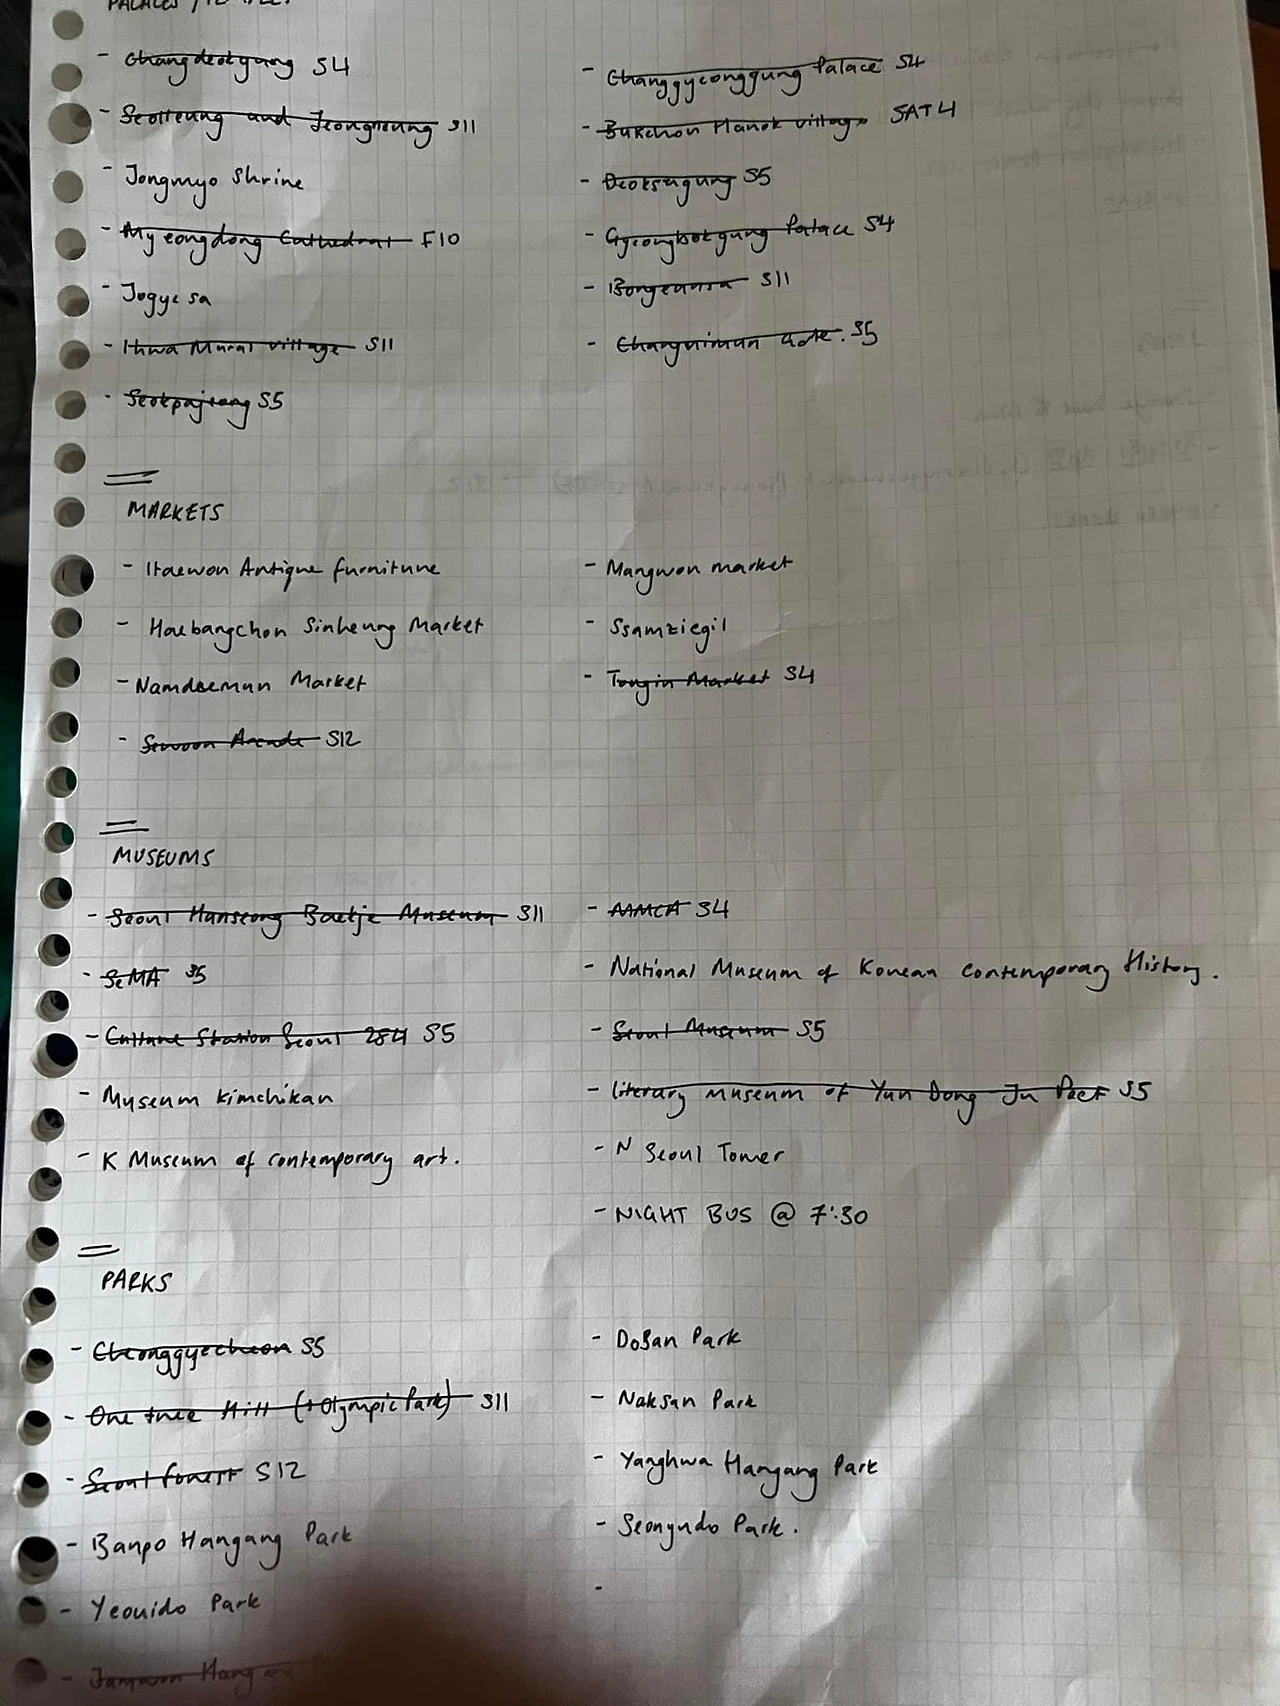 PALACES / TEMPLES
- Changdeokgung S4
- Seolleung and Jeongneung S11
- Jongmyo Shrine
- Myeongdong Cathedral F10
- Jogyesa
- Ihwa Mural Village S11
- Seokpajeong S5
- Changgyeonggung Palace S4
- Bukchon Hanok Village SAT4
- Deoksugung S5
- Gyeongbokgung Palace S4
- Bongeunsa S11
- Changuimun Gate. S5
MARKETS
- Itaewon Antique furniture
- Haebangchon Sinheung Market
- Namdaemun Market
- Sewoon Arcade S12
- Mangwon market
- Ssamziegil
- Tongin Market S4
MUSEUMS
- Seoul Hanseong Baekje Museum S11
- SeMA S5
- Culture Station Seoul 284 S5
- Museum kimchikan
- K Museum of contemporary art.
- MMCA S4
- National Museum of Korean Contemporary History.
- Seoul Museum S5
- literary museum of Yun Dong Ju Poet S5
- N Seoul Tower
- NIGHT BUS @ 7:30
PARKS
- Cheonggyecheon S5
- One tree Hill (+Olympic Park) S11
- Seoul forest S12
- Banpo Hangang Park
- Yeouido Park
- Jamwon Hangan
- Dosan Park
- Naksan Park
- Yanghwa Hangang Park
- Seonyudo Park.
-